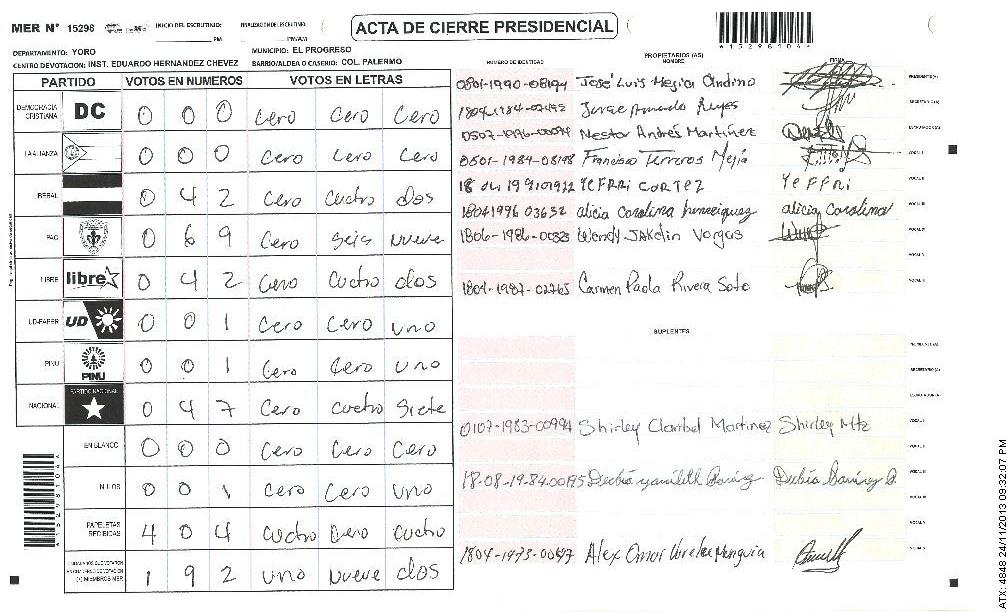 MER N° 15298 INICIO DEL ESCRUTINIO: PM FINALIZACION DEL ESCRUTINIO: PM/AM
ACTA DE CIERRE PRESIDENCIAL
DEPARTAMENTO: YORO MUNICIPIO: EL PROGRESO
CENTRO DE VOTACION: INST. EDUARDO HERNANDEZ CHEVEZ BARRIO/ALDEA O CASERIO: COL. PALERMO
PARTIDO VOTOS EN NUMEROS VOTOS EN LETRAS
DEMOCRACIA CRISTIANA DC 0 0 0 Cero Cero Cero
LA ALIANZA 0 0 0 Cero Cero Cero
LIBERAL 0 4 2 Cero Cuatro dos
PAC 0 6 9 Cero Seis nueve
LIBRE libre 0 4 2 Cero Cuatro dos
UD-FAPER UD 0 0 1 Cero Cero uno
PINU PINU 0 0 1 Cero Cero uno
NACIONAL PARTIDO NACIONAL 0 4 7 Cero cuatro Siete
EN BLANCO 0 0 0 Cero Cero Cero
NULOS 0 0 1 Cero Cero uno
PAPELETAS RECIBIDAS 4 0 4 Cuatro Cero Cuatro
1 9 2 uno nueve dos
NUMERO DE IDENTIDAD PROPIETARIOS (AS) NOMBRE FIRMA
0801-1990-08194 José Luis Mejia Andino PRESIDENTE(A)
Jorge Armando Reyes SECRETARIO(A)
Nestor Andrés Martínez ESCRUTADOR(A)
0501-1984-08198 Francisco Terreros Mejía VOCAL I
YEFRRi CORTEZ YeFFRi VOCAL II
18041996 03632 alicia Carolina henrriquez alicia Carolina VOCAL III
1806-1986-0033 Wendy JAKelin Vargas VOCAL IV
VOCAL V
1804-1987-02765 Carmen Paola Rivera Soto VOCAL VI
SUPLENTES
PRESIDENTE(A)
SECRETARIO(A)
ESCRUTADOR(A)
0107-1983-00994 Shirley Claribel Martinez Shirley Mtz VOCAL I
VOCAL II
18-08-19-84.00195 VOCAL III
VOCAL IV
VOCAL V
1804-1973-00647 Alex Omar VOCAL VI
ATX: 4848 24/11/2013 09:32:07 PM